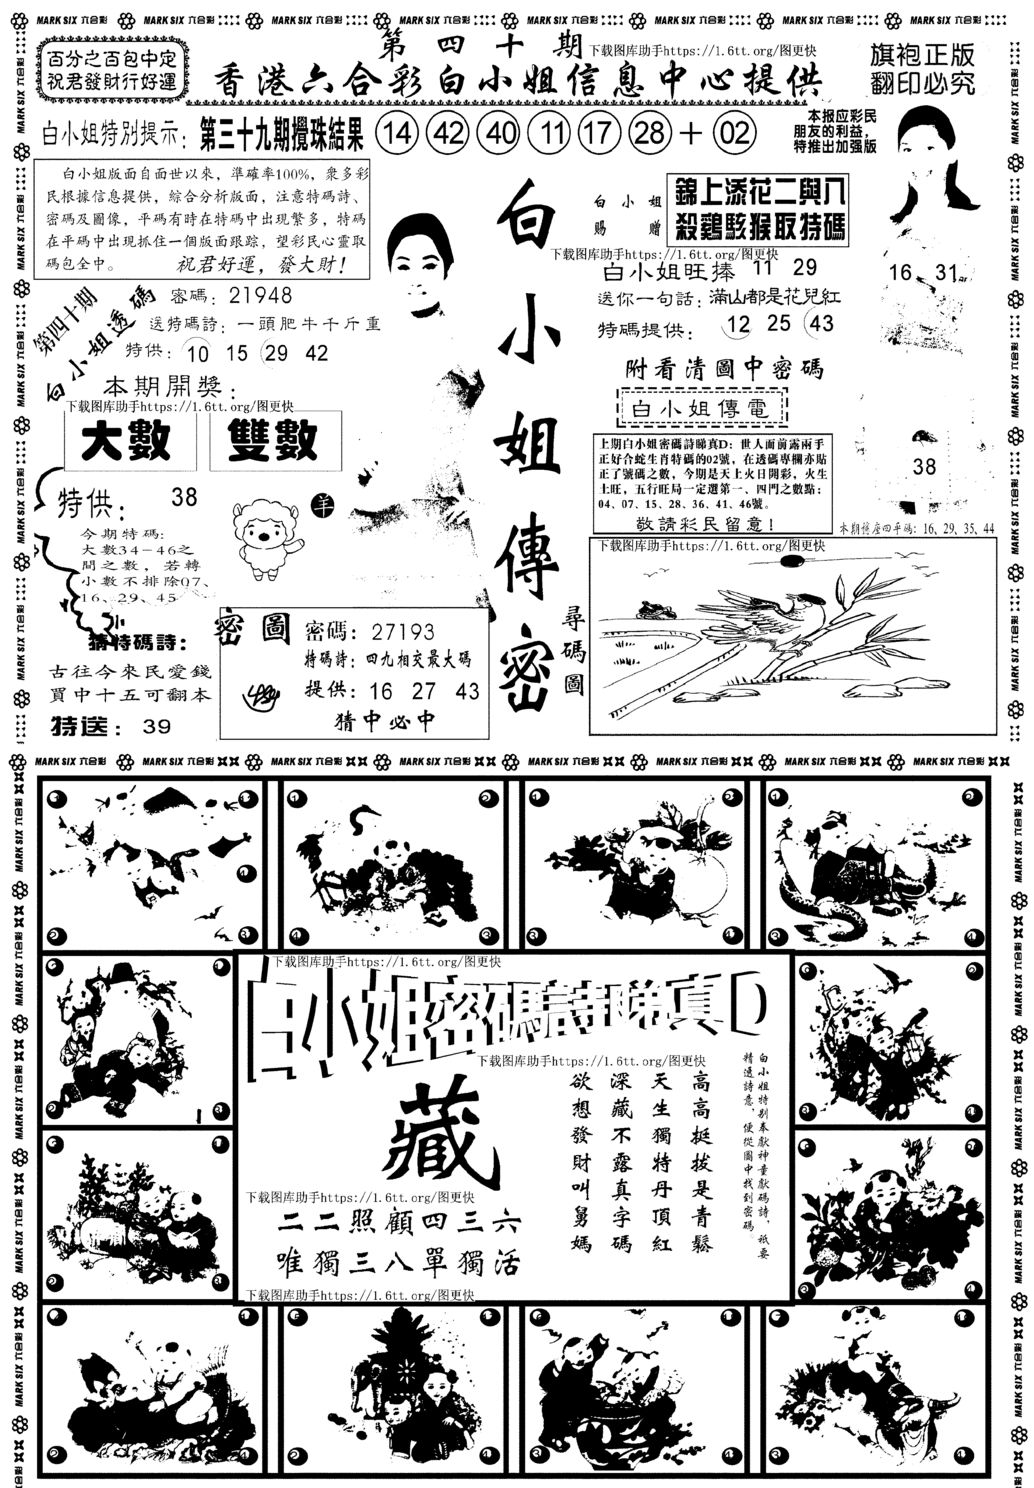 MARK SIX 六合彩
百分之百包中定
祝君發財行好運
第四十期
下载图库助手https://1.6tt.org/图更快
香港六合彩白小姐信息中心提供
旗袍正版
翻印必究
白小姐特別提示:
第三十九期攪珠結果 14 42 40 11 17 28 + 02
本报应彩民
朋友的利益,
特推出加强版
白小姐版面自面世以來,準確率100%,衆多彩
民根據信息提供,綜合分析版面,注意特碼詩、
密碼及圖像,平碼有時在特碼中出現繁多,特碼
在平碼中出現抓住一個版面跟踪,望彩民心靈取
碼包全中。 祝君好運,發大財!
第四十期
白小姐透碼
密碼:21948
送特碼詩:一頭肥牛千斤重
特供: 10 15 29 42
本期開獎:
下载图库助手https://1.6tt.org/图更快
大數 雙數
特供: 38
羊
今期特碼:
大數34-46之
間之數,若轉
小數不排除07、
16、29、45
猜特碼詩:
古往今來民愛錢
買中十五可翻本
特送:39
密圖
密碼:27193
特碼詩:四九相交最大碼
提供:16 27 43
猜中必中
白小姐傳密
白小姐
賜贈
錦上添花二與八
殺鷄駭猴取特碼
下载图库助手https://1.6tt.org/图更快
白小姐旺捧 11 29
送你一句話:滿山都是花兒紅
特碼提供: 12 25 43
附看清圖中密碼
白小姐傳電
上期白小姐密碼詩睇真D:世人面前露兩手
正好合蛇生肖特碼的02號,在透碼專欄亦貼
正了號碼之數,今期是天上火日開彩,火生
土旺,五行旺局一定選第一、四門之數點:
04、07、15、28、36、41、46號。
敬請彩民留意!
16 31
38
本期後座四平碼:16、29、35、44
下载图库助手https://1.6tt.org/图更快
尋碼圖
MARK SIX 六合彩
下载图库助手https://1.6tt.org/图更快
白小姐密碼詩睇真D
下载图库助手https://1.6tt.org/图更快
白小姐特別奉獻神童獻碼詩,祇要
精通詩意,便從圖中找到密碼。
高高挺拔是青鬆
天生獨特丹頂紅
深藏不露真字碼
欲想發財叫舅媽
藏
下载图库助手https://1.6tt.org/图更快
二二照顧四三六
唯獨三八單獨活
下载图库助手https://1.6tt.org/图更快